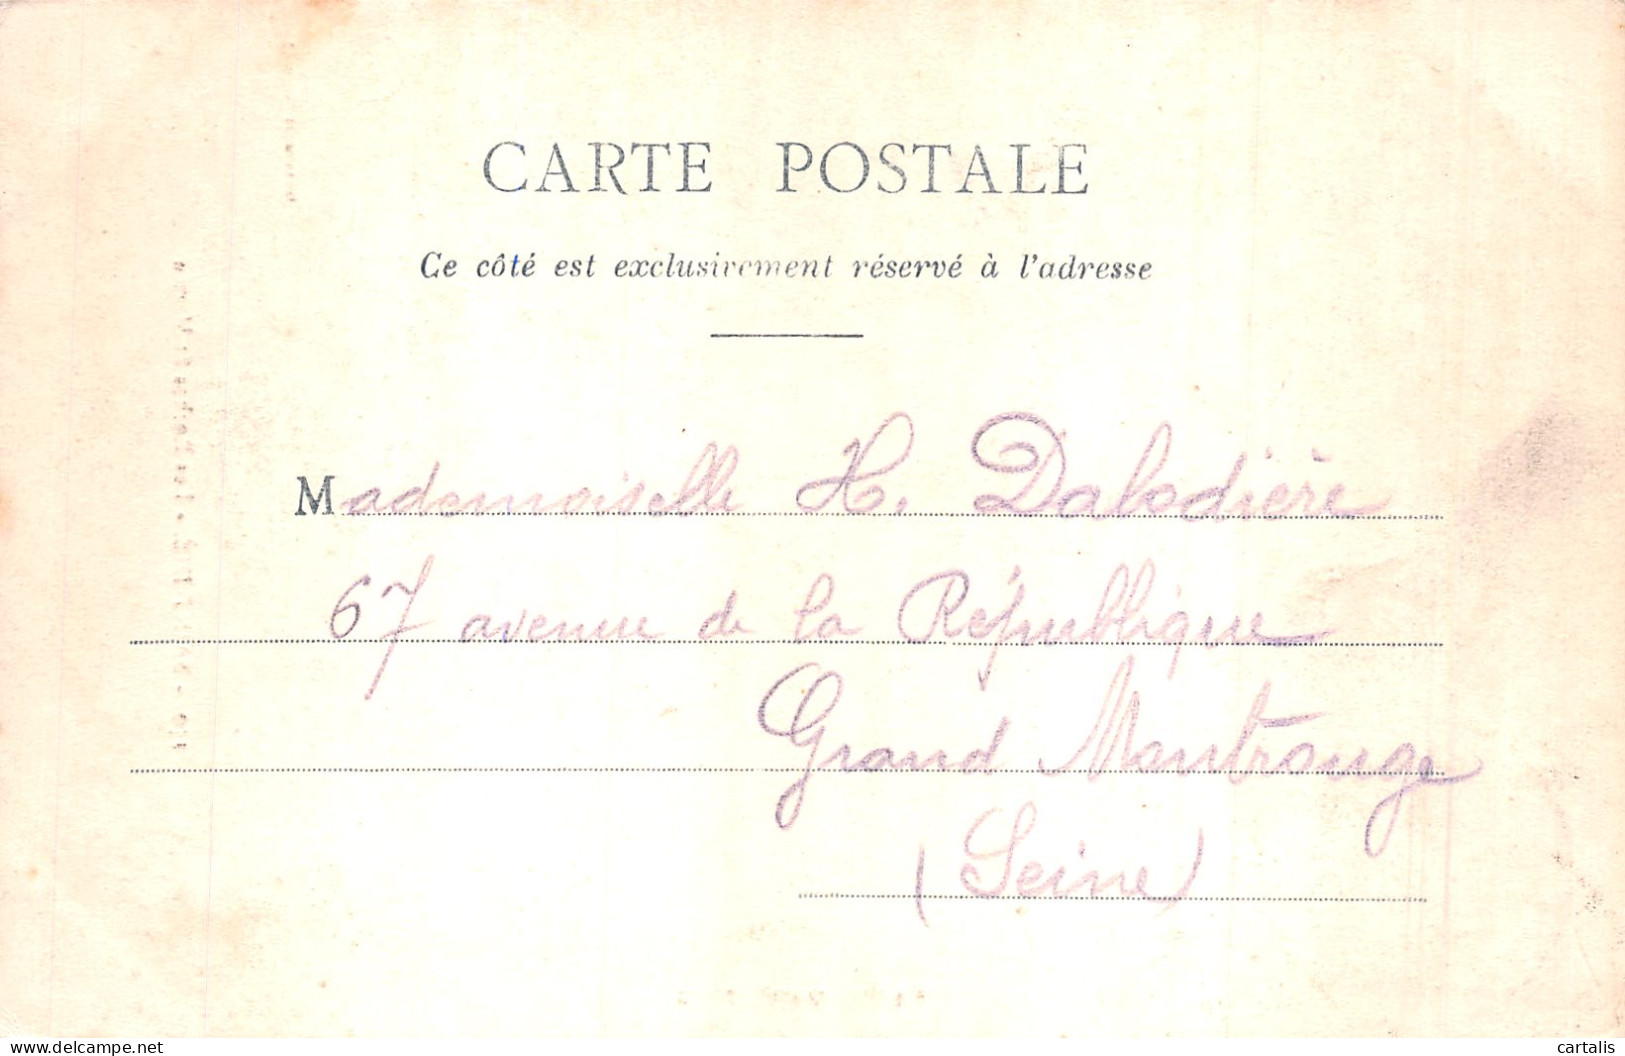 CARTE POSTALE
Ce côté est exclusivement réservé à l'adresse
Mademoiselle H. Daladière
67 avenue de la République
Grand Montrouge
(Seine)
cartalis
delcampe.net